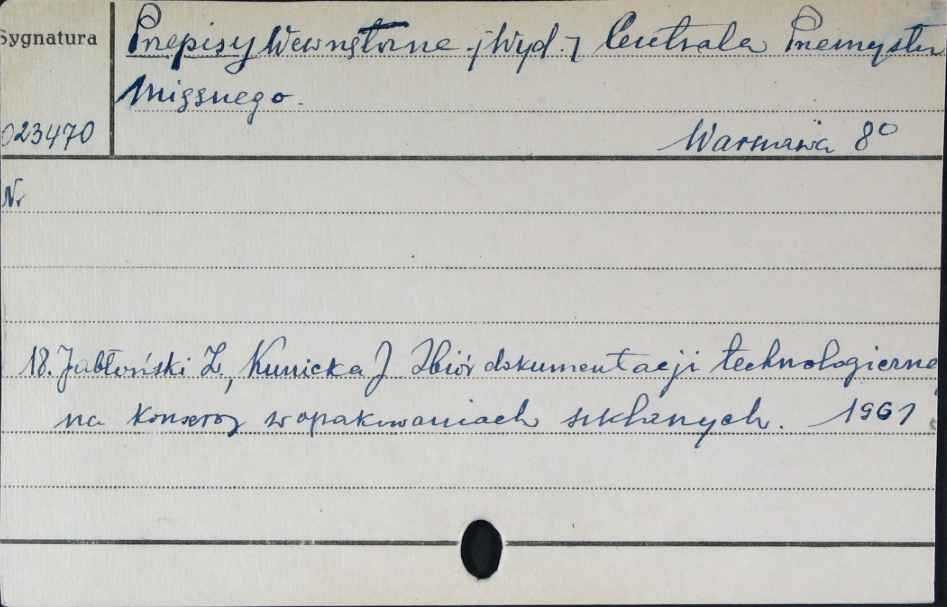 Sygnatura
Przepisy Wewnętrzne. [Wyd.] Centrala Przemysłu
Mięsnego.
023470
Warszawa 8°
Nr
18. Jabłoński Z, Kunicka J Zbiór dokumentacji technologicznej
na konserwy w opakowaniach szklanych. 1961